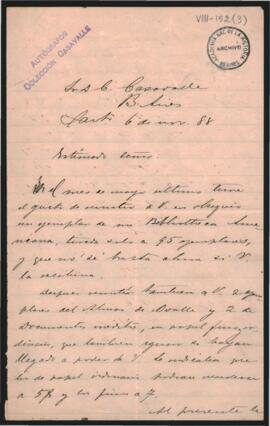 VIII-152(3)
AUTÓGRAFOS
COLECCION CASAVALLE
ARCHIVO
Sr. D. C. Casavalle
B. Aires
6 de nov. 88
Estimado señor:
El mes de mayo último tuve
el gusto de remitir a V. en obsequio
un ejemplar de mi Biblioteca Ame-
ricana, tirada solo a 95 ejemplares,
y que no sé hasta ahora si V.
la recibiria.
Despues remití tambien a V. 2 ejem
plares del de Ovalle y 2 de
Documentos inéditos, en papel
que también ignoro si hayan
llegado a poder de V. Le indicaba que
los de papel ordinario podian venderse
a 5 \$ y los finos a 7.
Al presente le